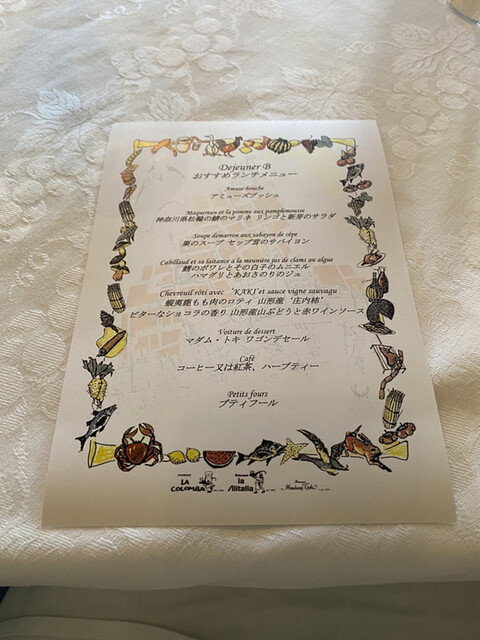 Dejeuner B
おすすめランチメニュー
Amuse bouche
アミューズブッシュ
Maquereau et la pomme aux pamplemousse
神奈川県松輪の鯖のマリネ リンゴと新芽のサラダ
Soupe demarron aux sabayon de cèpe
栗のスープ セップ茸のサバイヨン
Cabillaud et sa laitance à la meunière jus de clams au algue
鱈のポワレとその白子のムニエル
ハマグリとあおさのりのジュ
Chevreuil rôti avec 'KAKI' et sauce vigne sauvagu
蝦夷鹿もも肉のロティ 山形産 '庄内柿'
ビターなショコラの香り 山形産山ぶどうと赤ワインソース
Voiture de dessert
マダム・トキ ワゴンデセール
Café
コーヒー又は紅茶、ハーブティー
Petits fours
プティフール
LA COLOMBA
la Alitalia